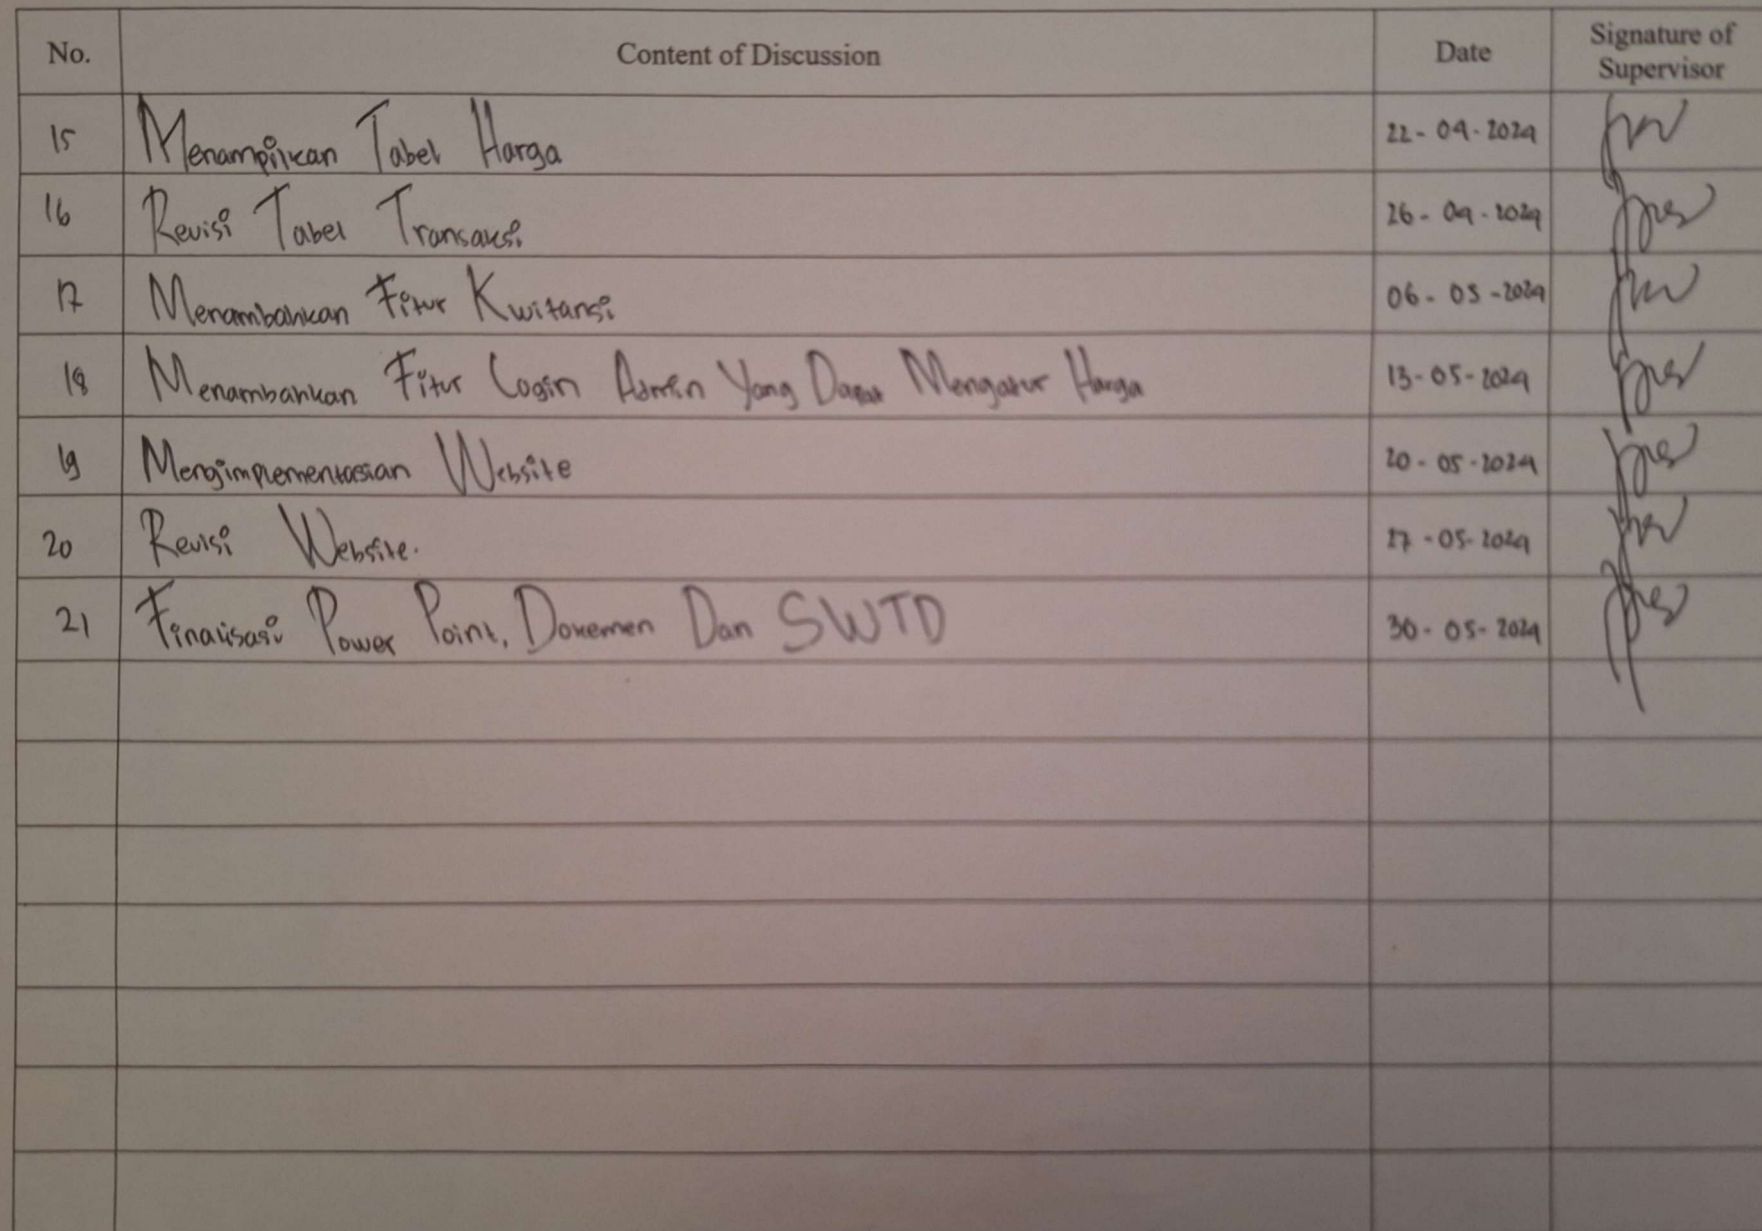 No. Content of Discussion Date Signature of Supervisor
15 Menampilkan Tabel Harga 22-04-2024
16 Revisi Tabel Transaksi 26-04-2024
17 Menambahkan Fitur Kwitansi 06-05-2024
18 Menambahkan Fitur Login Admin Yang Dapat Mengatur Harga 13-05-2024
19 Mengimplementasian Website 20-05-2024
20 Revisi Website. 27-05-2024
21 Finalisasi Power Point, Dokemen Dan SWTD 30-05-2024